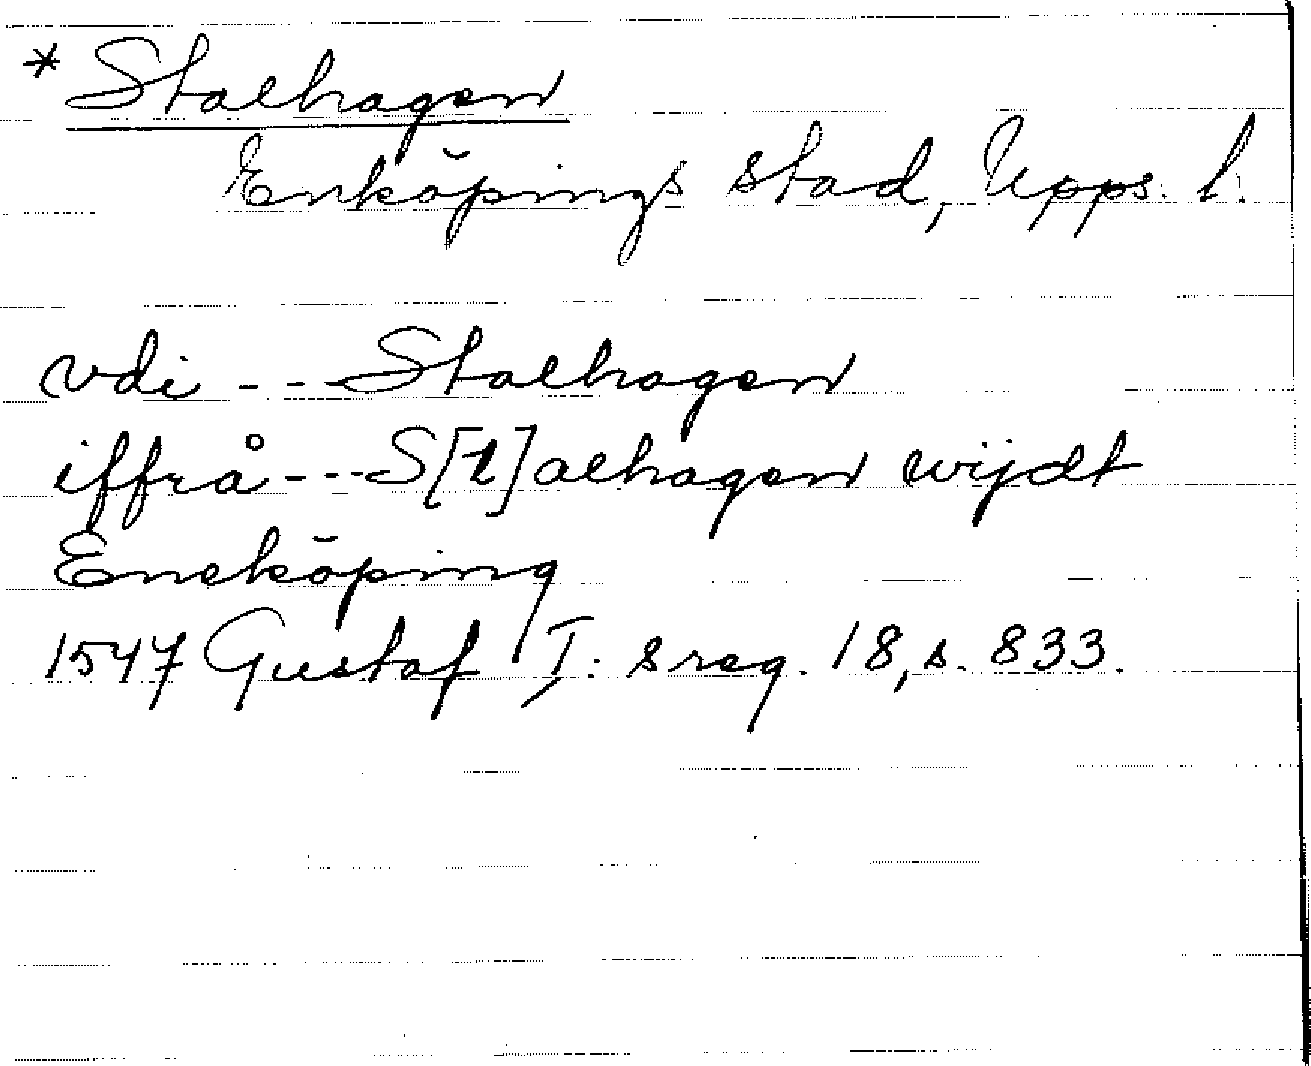 * Stalhagen
Enköpings stad, Upps. l.
vdi --- Stalhagen
iffrå --- S[t]alhagen wijdt
Eneköping
1547 Gustaf I:s reg. 18, s. 833.